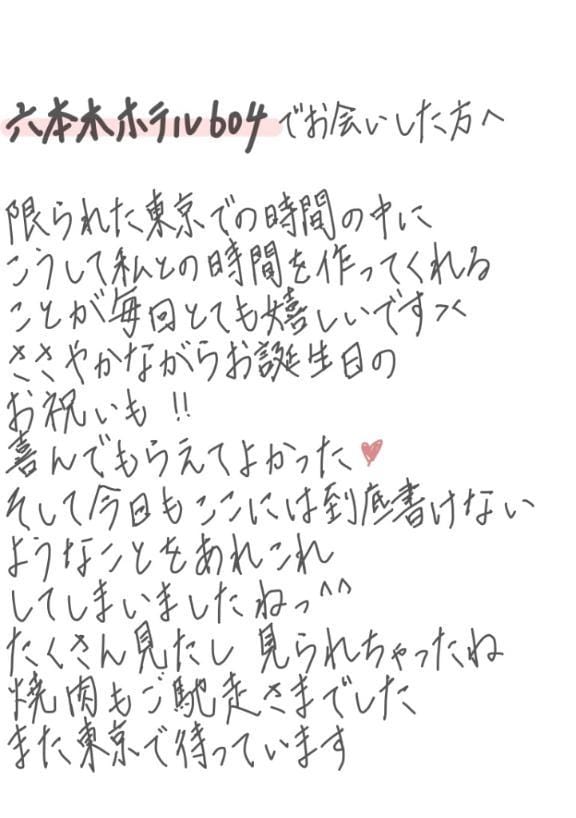 六本木ホテル604でお会いした方へ
限られた東京での時間の中に
こうして私との時間を作ってくれる
ことが毎回とても嬉しいです><
ささやかながらお誕生日の
お祝いも!!
喜んでもらえてよかった♥
そして今日もここには到底書けない
ようなことをあれこれ
してしまいましたねっ^^
たくさん見たし 見られちゃったね
焼肉もご馳走さまでした
また東京で待っています